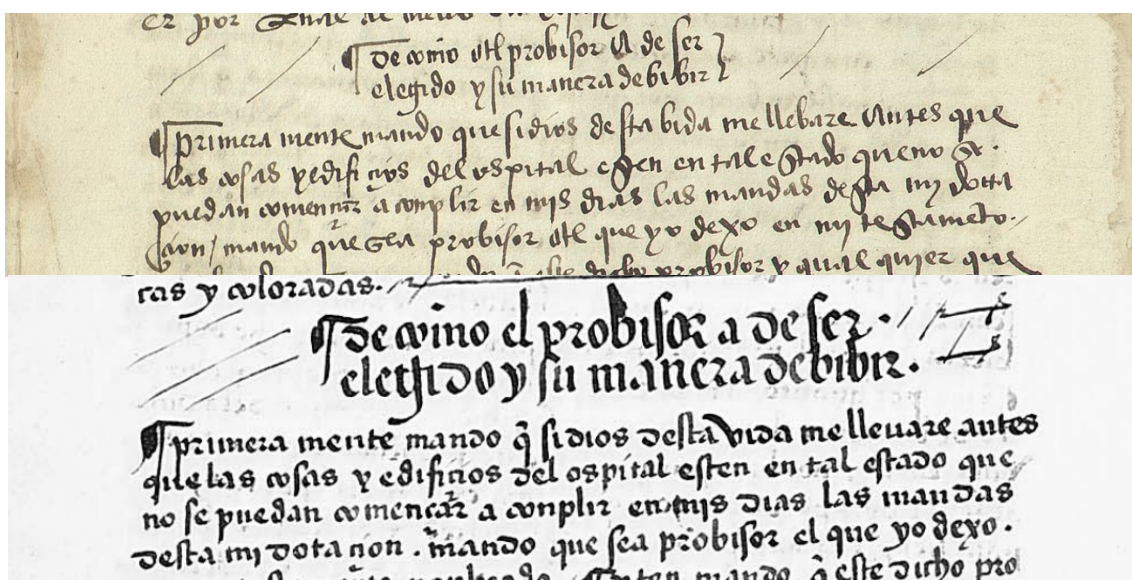 er por
¶ De como el probisor a de ser
elegido y su manera de bibir
¶ primera mente mando que si dios desta bida me llebare antes que
las cosas y edificios del ospital esten en tal estado que no se
puedan comencar a conplir en mis dias las mandas desta my dotta
cion / mando que sea probisor el que yo dexo en my testameto.
dicho probisor y qual quier que
cas y coloradas.
¶ De como el probisor a de ser.
elegido y su manera de bibir.
¶ primera mente mando q̃ si dios desta vida me lleuare antes
que las cosas y edificios del ospital esten en tal estado que
no se puedan comencar a conplir en mis dias las mandas
desta mi dotacion. mando que sea probisor el que yo dexo.
mando q̃ este dicho pro